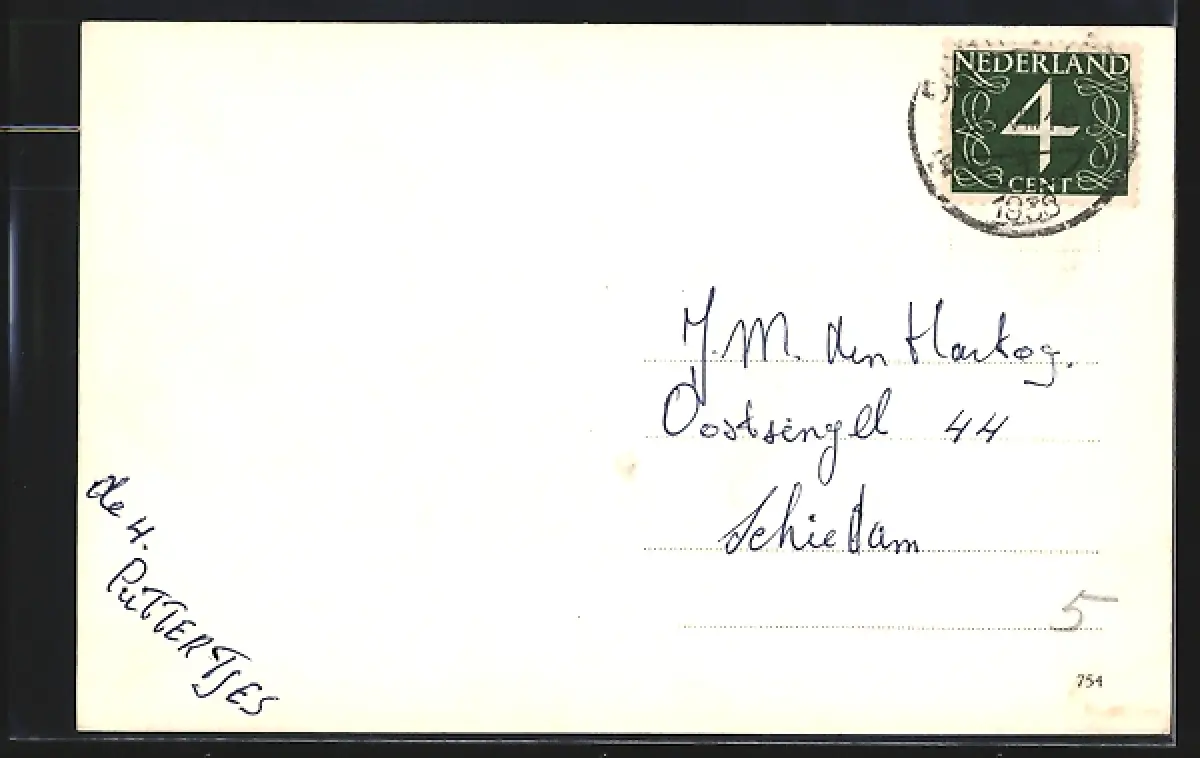 NEDERLAND
4
CENT
J. M. den Hartog.
Oostsingel 44
Schiedam
de 4.
PUTTERTJES
5
754